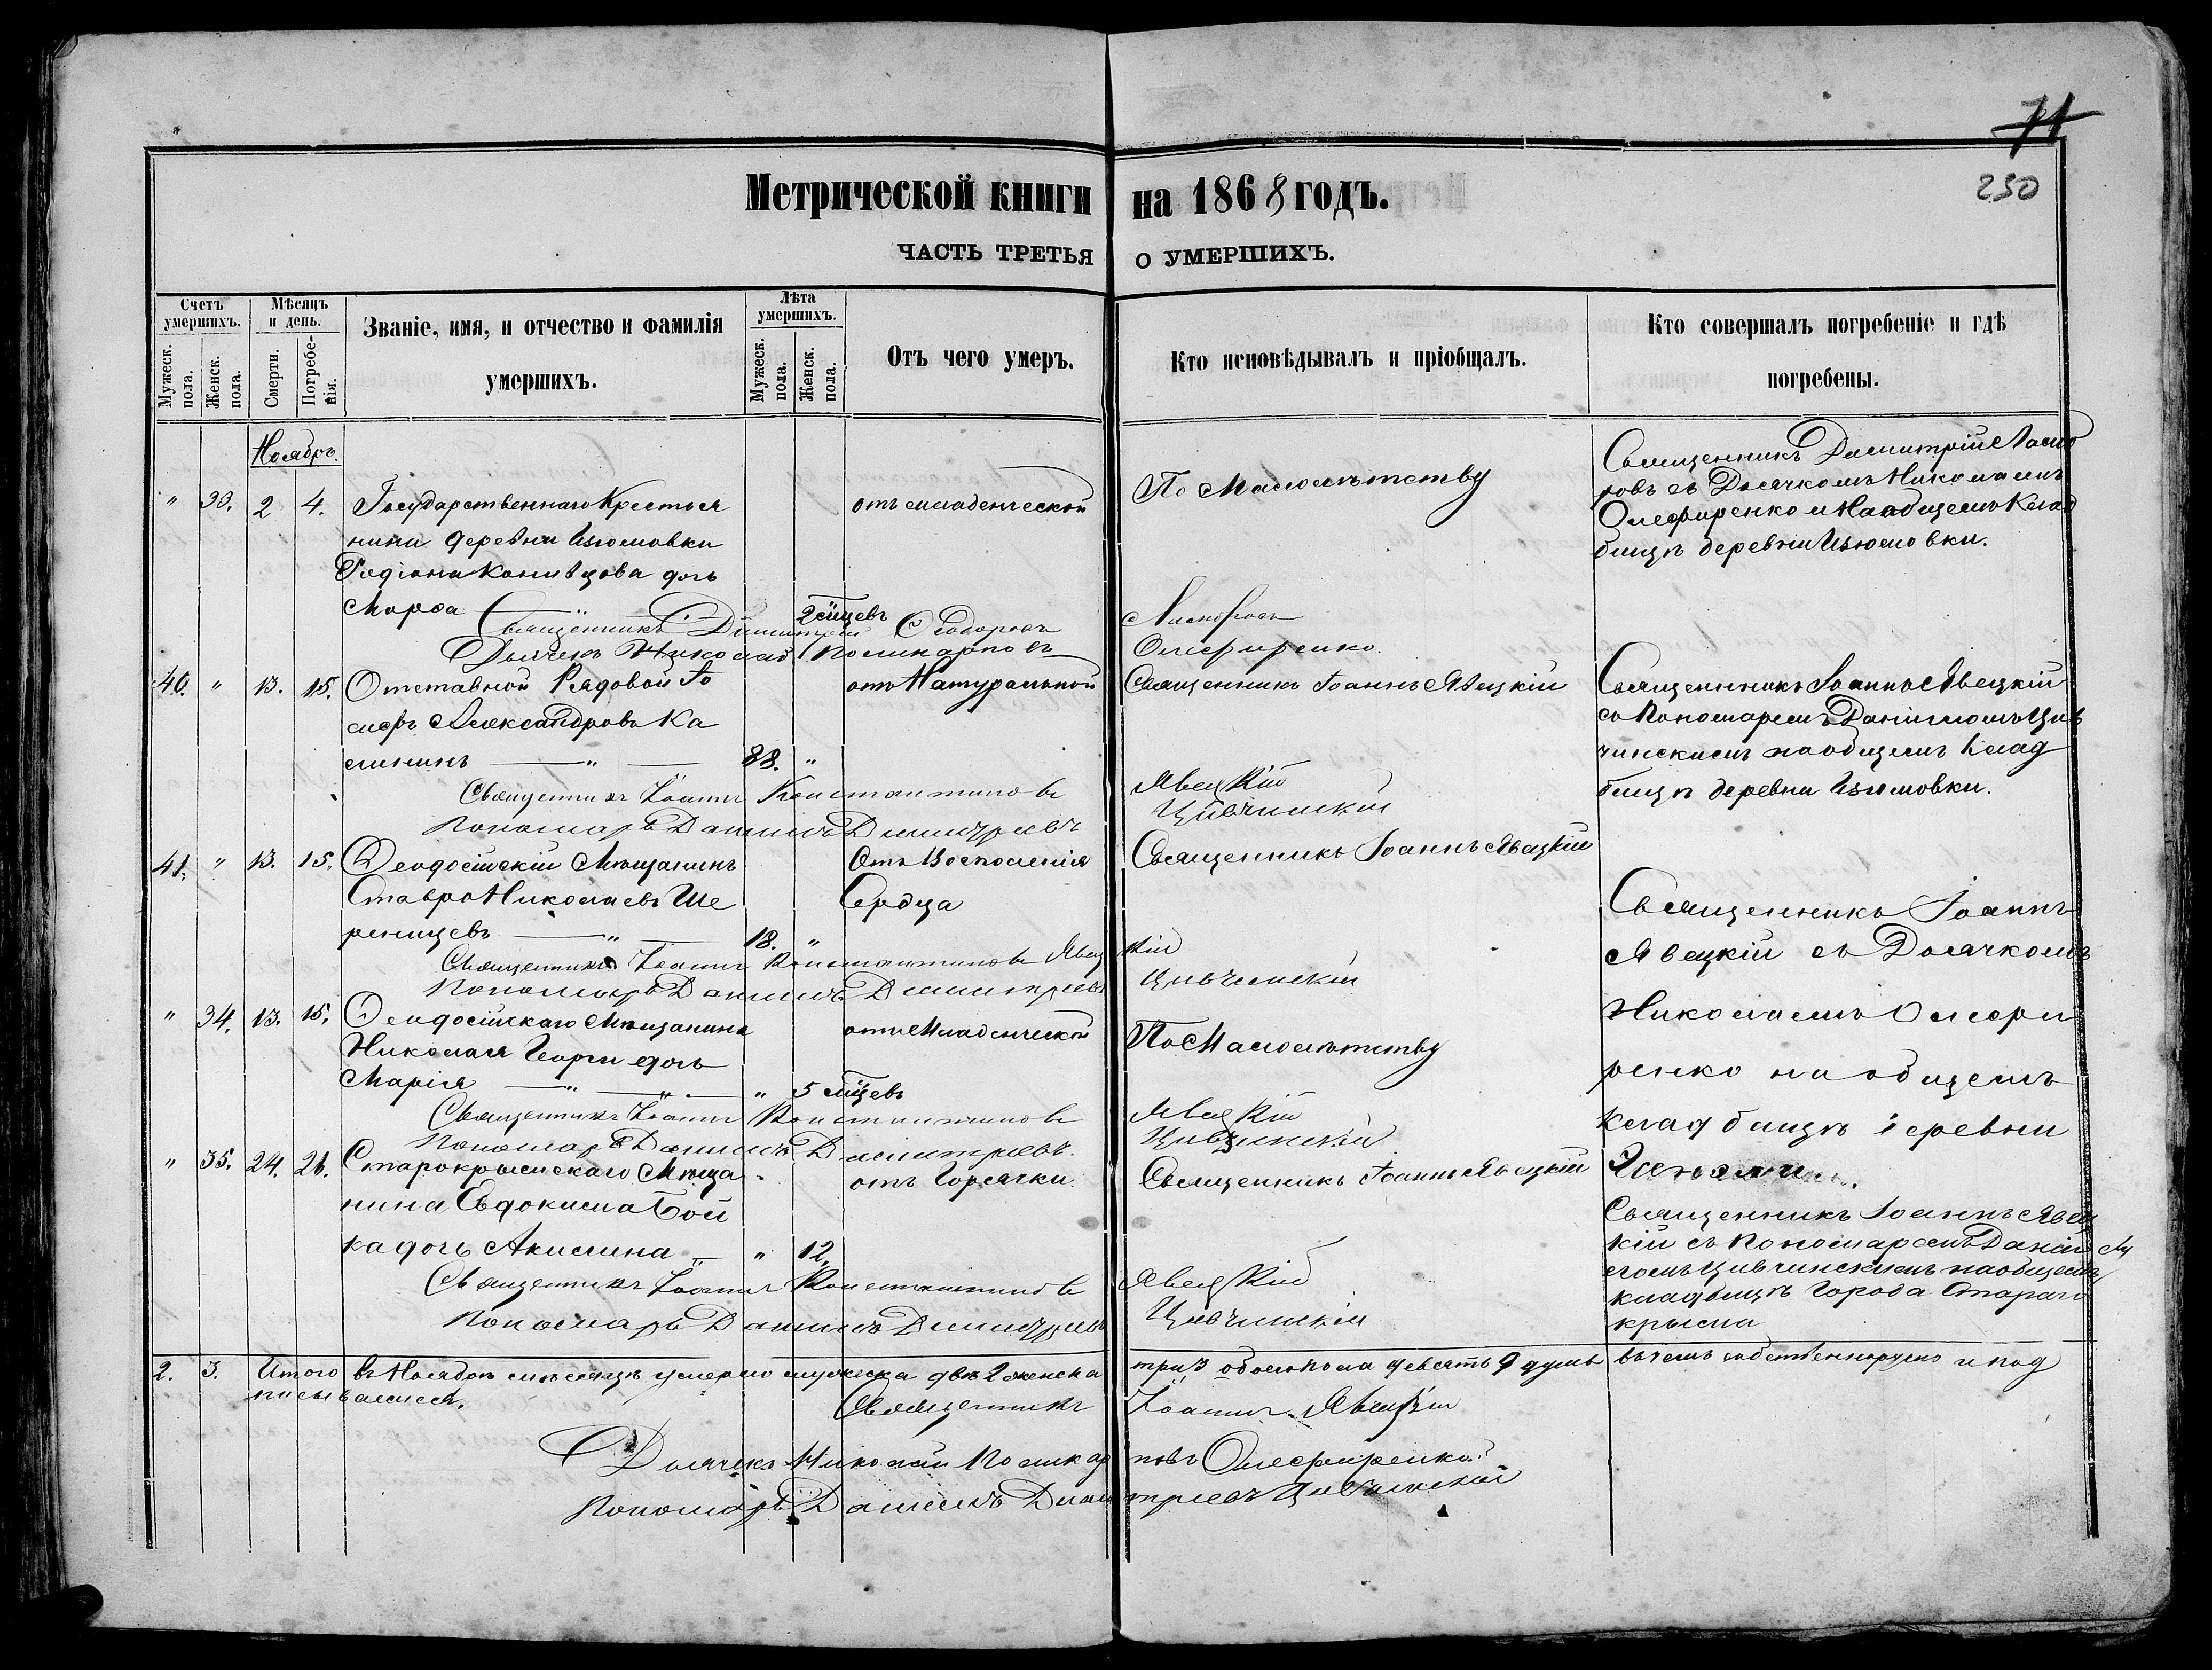 71
250
Метрической книги на 1868 годъ.
ЧАСТЬ ТРЕТЬЯ О УМЕРШИХЪ.
Счетъ умершихъ.
Мужеск. пола.
Женск. пола.
Мѣсяцъ и день.
Смерти.
Погребенія.
Званіе, имя, и отчество и фамилія
умершихъ.
Лѣта умершихъ.
Мужеск. пола.
Женск. пола.
Отъ чего умеръ.
Кто исповѣдывалъ и пріобщалъ.
Кто совершалъ погребеніе и гдѣ
погребены.
Ноябрь.
" 33. 2 4.
Государственнаго Крестья
нина деревни Изюмовки
Родіона дочь
Марѳа 2 мѣсцевъ
отъ младенческой
По Малолѣтству
Священникъ Димитрій
ровъ съ Дьячкомъ Николаемъ
Олефиренко на общемъ Клад
бищѣ деревни Изюмовки.
Священникъ Димитрій
Дьячекъ Николай Поликарповъ Олефиренко.
40. " 13. 15.
Отставной Рядовой Іо
сифъ Александровъ Ка
лининъ — " — 88. "
отъ Натуральной
Священникъ Іоаннъ Явецкій
Священникъ Іоаннъ Явецкій
съ Пономаремъ Даніиломъ Цив
чинскимъ на общемъ клад
бищѣ деревни Изюмовки.
Священникъ Іоаннъ Константиновъ Явецкій
Пономарь Даніилъ Димитріевъ Цивчинскій
41. " 13. 15.
Ѳеодосійскій Мѣщанинъ
Ставро Николаевъ Ше
ренцевъ — " — 18. "
Отъ Воспаленія
Сердца
Священникъ Іоаннъ Явецкій
Священникъ Іоаннъ
Явецкій съ Дьячкомъ
Николаемъ Олефи
ренко на общемъ
кладбищѣ деревни
Священникъ Іоаннъ Константиновъ Явецкій
Пономарь Даніилъ Димитріевъ Цивчинскій
" 34. 13. 15.
Ѳеодосійскаго Мѣщанина
Николая Георги дочь
Марія — " — " 5 мѣцевъ
отъ Младенческой
По Малолѣтству
Священникъ Іоаннъ Константиновъ Явецкій
Пономарь Даніилъ Димитріевъ Цивчинскій
" 35. 24. 26.
Старокрымскаго Мѣща
нина Евдокима Бой
ка дочь Акилина — " 12.
отъ Горячки
Священникъ Іоаннъ Явецкій
Священникъ Іоаннъ Явец
кій съ Пономаремъ Даніи
ломъ Цивчинскимъ на общемъ
кладбищѣ Города Стараго
крыма
Священникъ Іоаннъ Константиновъ Явецкій
Пономарь Даніилъ Димитріевъ Цивчинскій
2. 3. Итого въ Ноябрѣ мѣсяцѣ умерло мужеска двѣ 2 женска три 3 обоего пола девять 9 душъ въ чемъ собственноручно и под
писываемся.
Священникъ Іоаннъ Явецкій
Дьячекъ Николай Поликарповъ Олефиренко
Пономарь Даніилъ Димитріевъ Цивчинскій